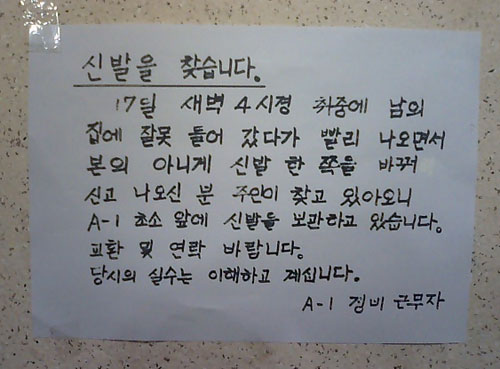 신발을 찾습니다.
17일 새벽 4시경 취중에 남의
집에 잘못 들어 갔다가 빨리 나오면서
본의 아니게 신발 한 쪽을 바꿔
신고 나오신 분 주인이 찾고 있아오니
A-1 초소 앞에 신발을 보관하고 있습니다.
교환 및 연락 바랍니다.
당시의 실수는 이해하고 계십니다.
A-1 경비 근무자